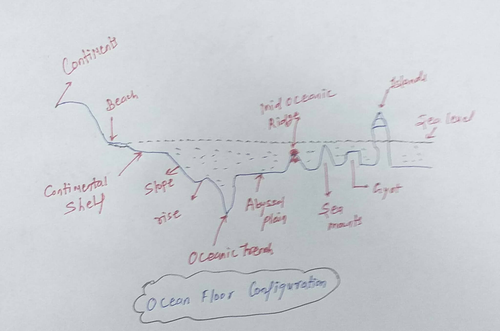 Continents
Beach
Mid Oceanic
Ridge
Islands
Sea level
Continental
Shelf
Slope
rise
Abyssal
plain
Sea
mounts
Gyot
Oceanic trench
Ocean Floor Configuration